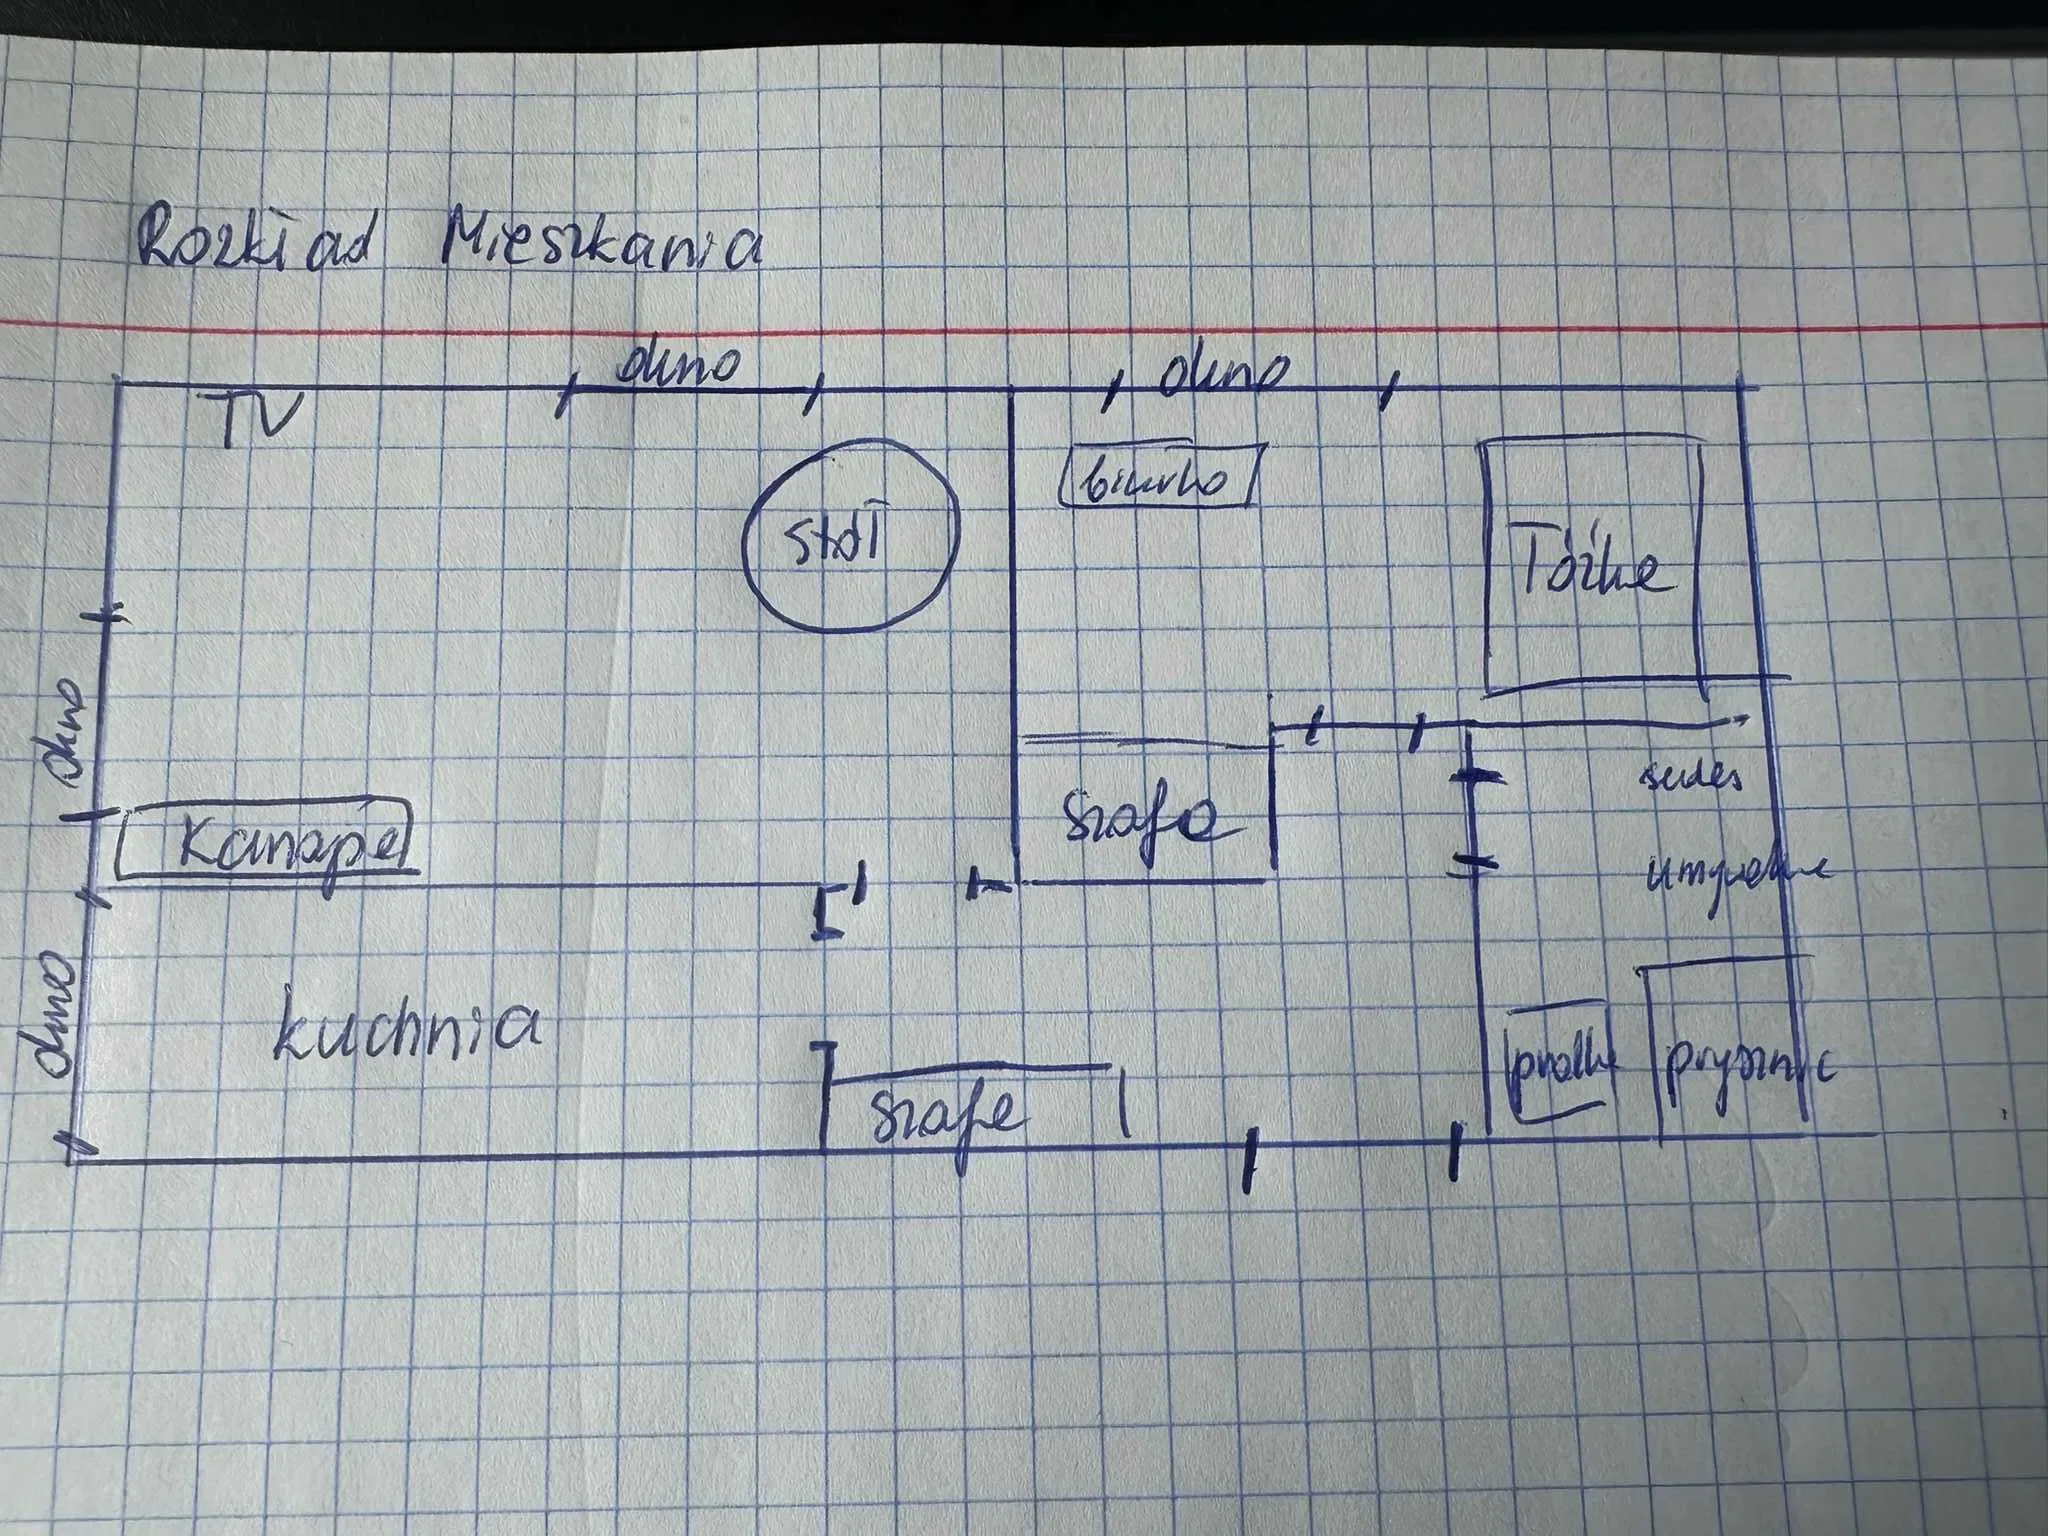 Rozkład Mieszkania
okno
okno
TV
biurko
stół
Łóżke
okno
sedes
Kanapa
szafa
umywalke
okno
kuchnia
pralke
prysznic
szafa